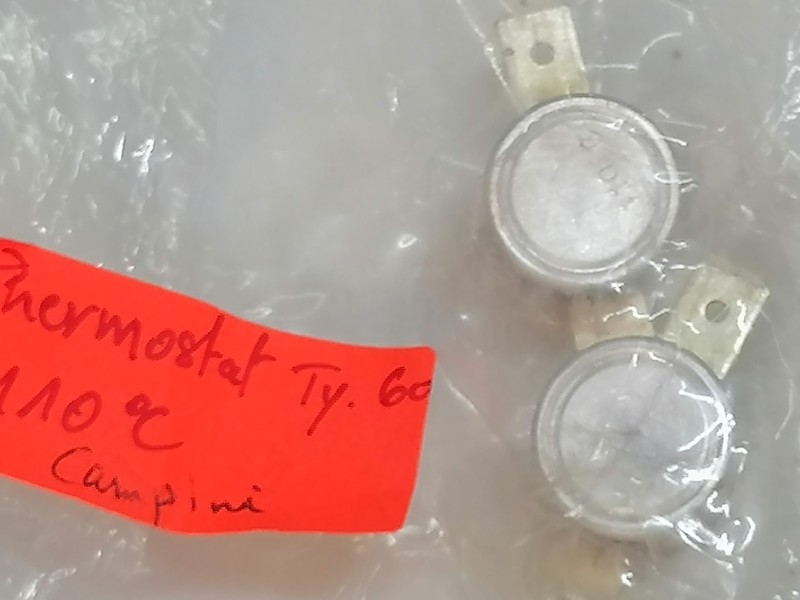 Thermostat Ty. 60
110 °C
Campini